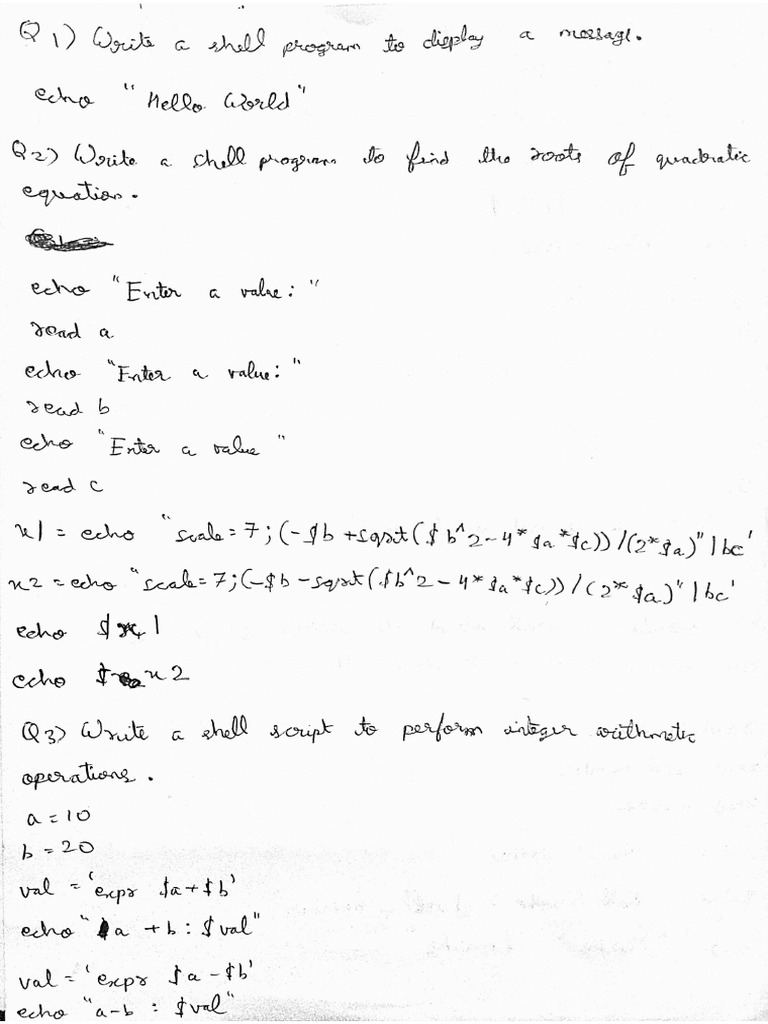 Q 1) Write a shell program to display a message.
echo "Hello World"
Q2) Write a shell program to find the roots of quadratic
equation.
echo "Enter a value: "
read a
echo "Enter a value: "
read b
echo "Enter a value "
read c
x1 = echo "scale=7;(-$b +sqrt($b^2-4*$a*$c))/(2*$a)"|bc'
x2 = echo "scale=7;(-$b -sqrt($b^2-4*$a*$c))/(2*$a)"|bc'
echo $x1
echo $x2
Q3) Write a shell script to perform integer arithmetic
operations.
a=10
b=20
val = 'expr $a+$b'
echo "a +b: $val"
val = 'expr $a-$b'
echo "a-b : $val"